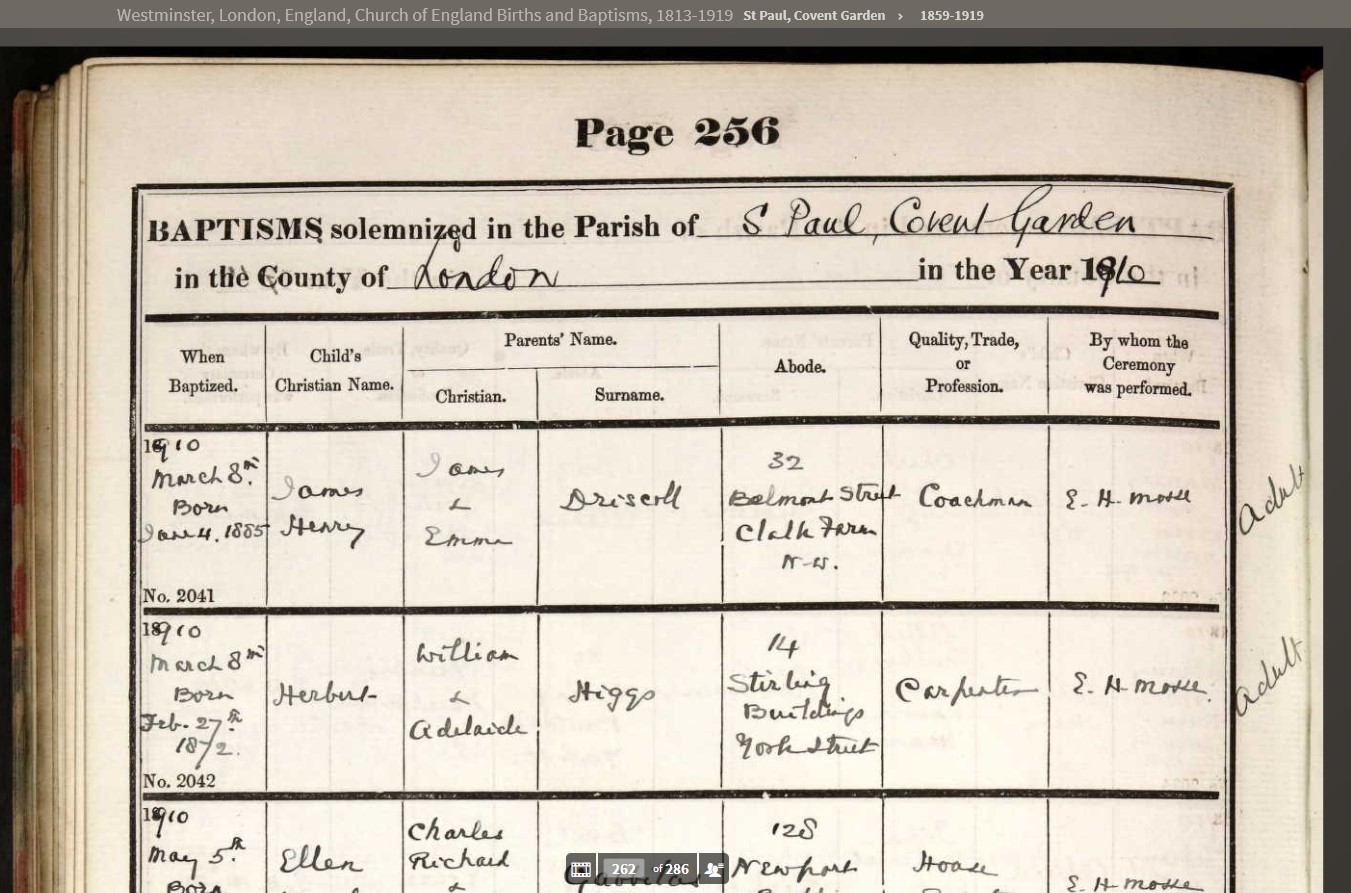 Westminster, London, England, Church of England Births and Baptisms, 1813-1919 St Paul, Covent Garden › 1859-1919
Page 256
BAPTISMS solemnized in the Parish of S Paul, Covent Garden
in the County of London in the Year 1910
When Baptized.
Child's Christian Name.
Parents' Name.
Christian.
Surname.
Abode.
Quality, Trade, or Profession.
By whom the Ceremony was performed.
1910
March 8th
Born
Jan 4. 1885
No. 2041
James
Henry
James
&
Emma
Driscoll
32
Belmont Street
Chalk Farm
N.W.
Coachman
E. H. Mosse
adult
1910
March 8th
Born
Feb. 27th
1872.
No. 2042
Herbert
William
&
Adelaide
Higgs
14
Stirling
Buildings
York Street
Carpenter
E. H. Mosse.
adult
1910
May 5th
Born
Ellen
Charles
Richard
&
128
Newport
House
E. H. Mosse
262 of 286